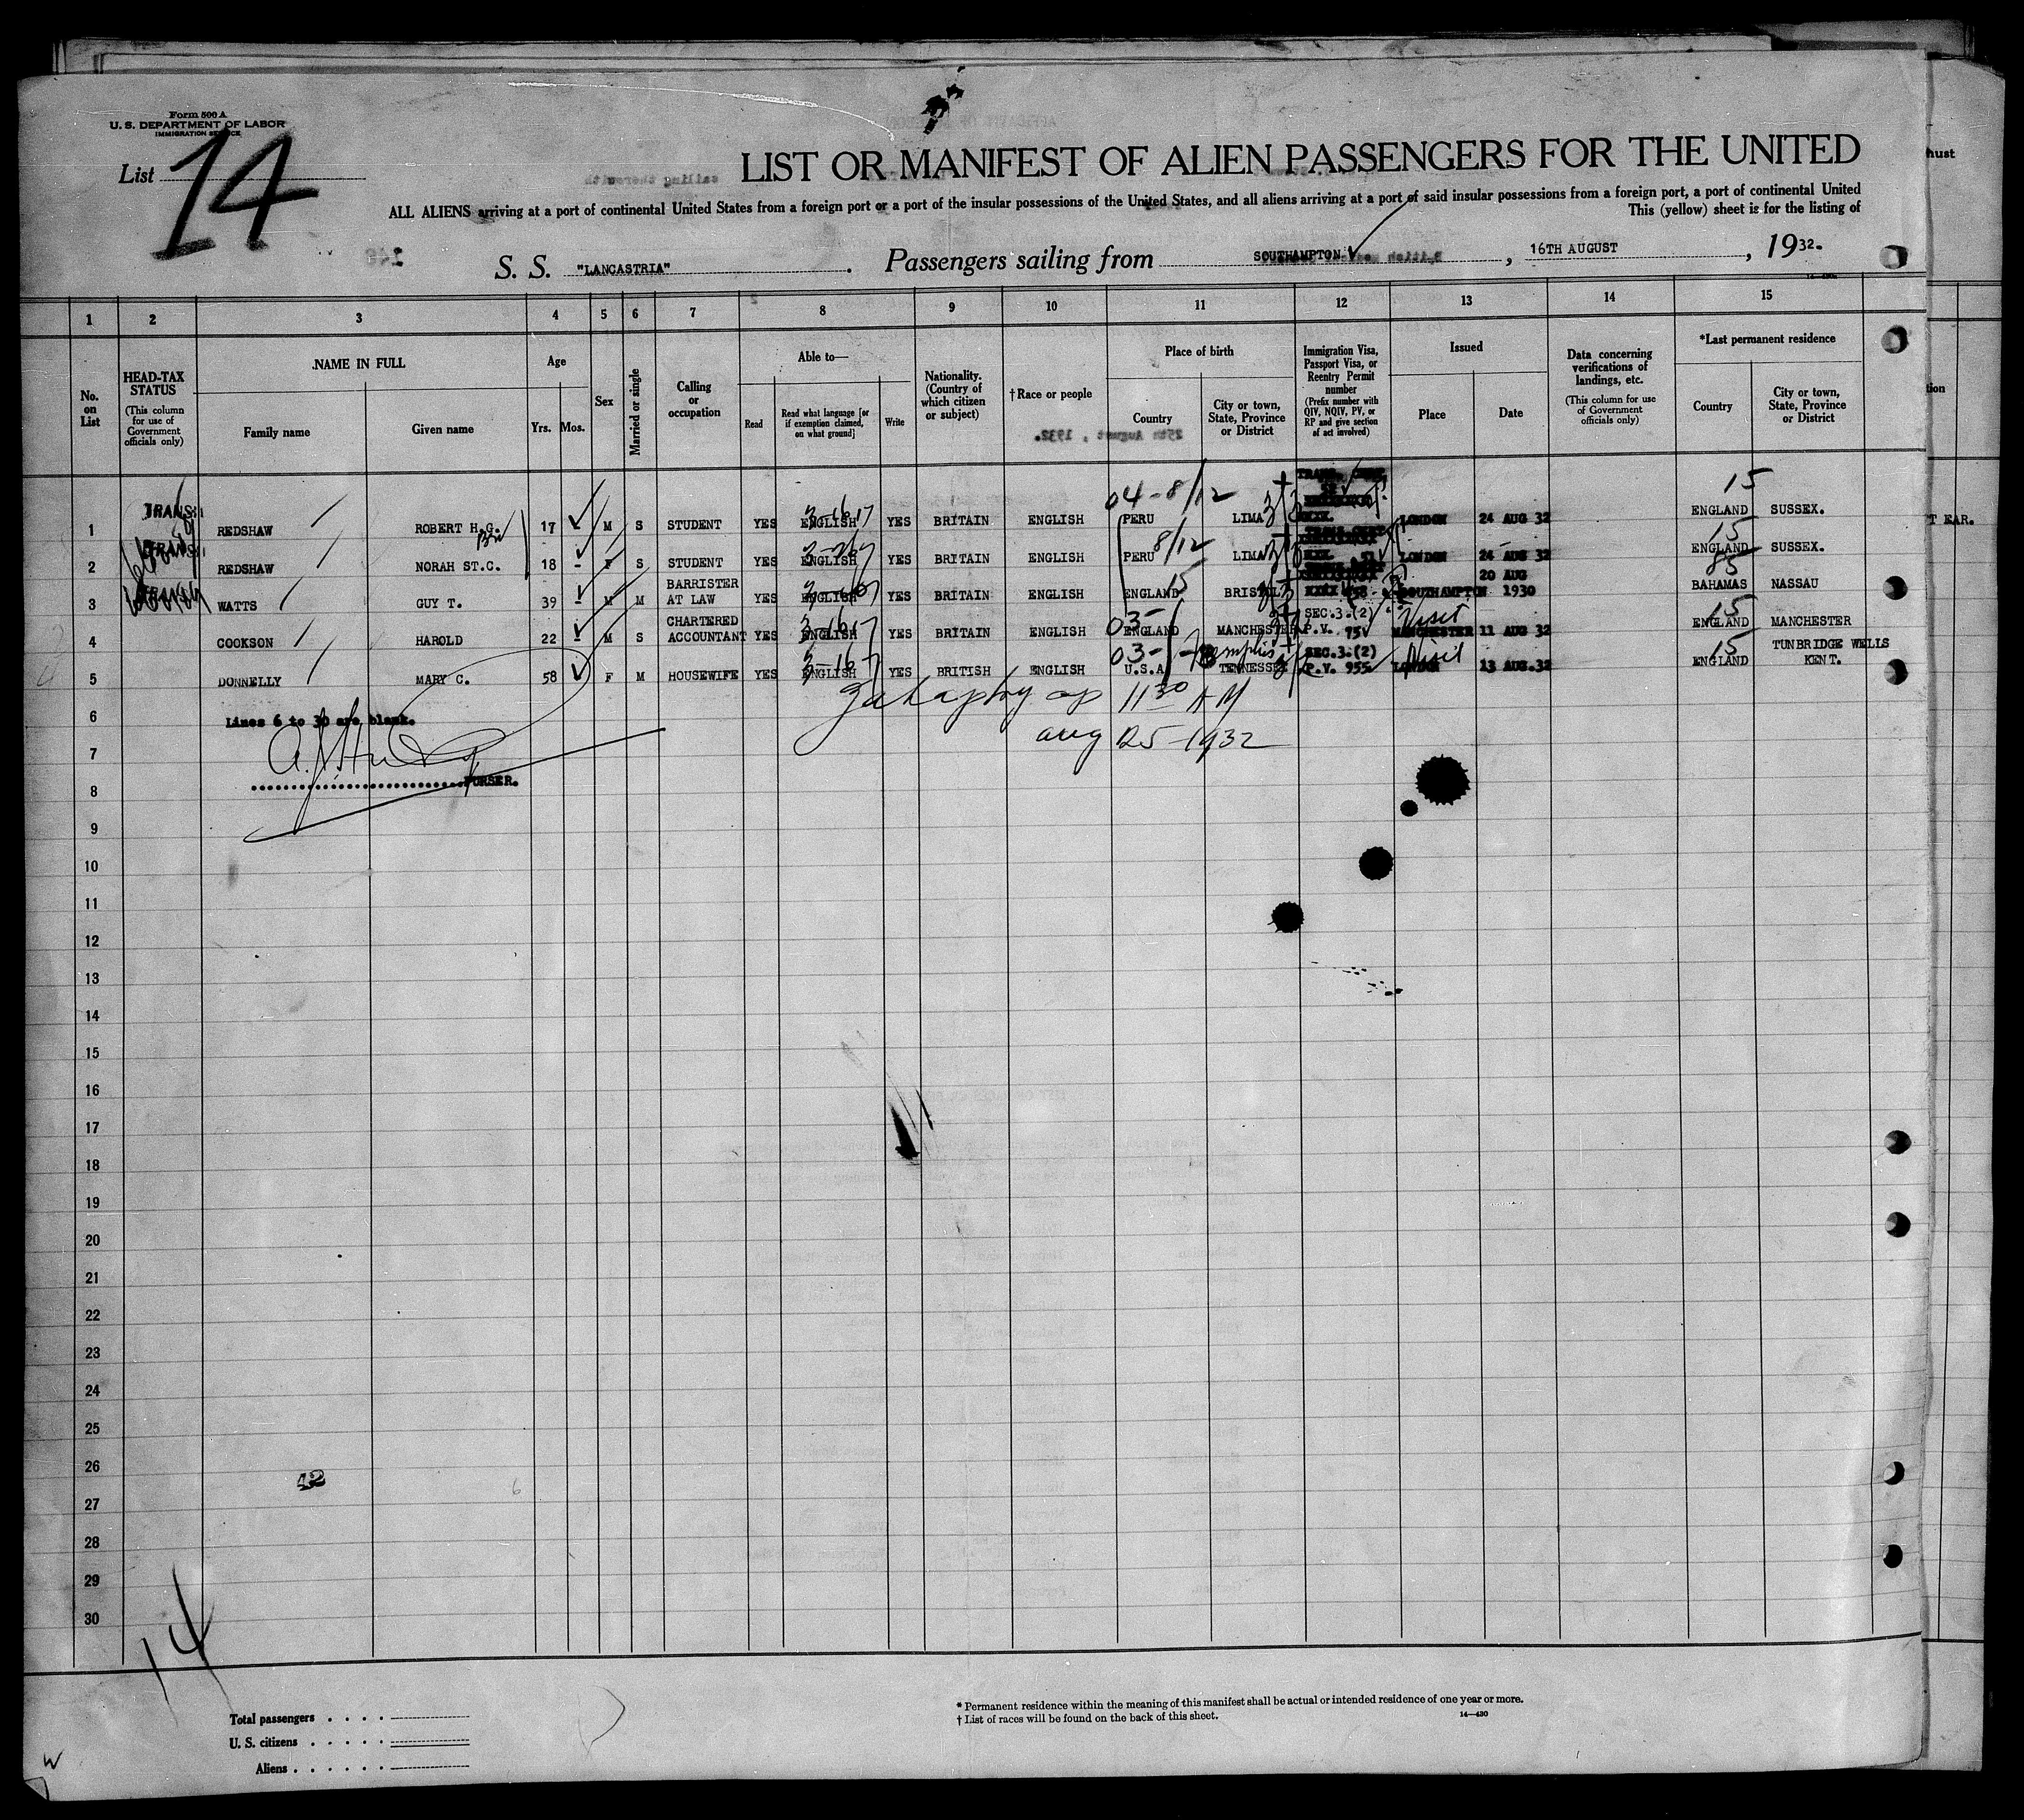 Form 500 A
U. S. DEPARTMENT OF LABOR
IMMIGRATION SERVICE
List 14
LIST OR MANIFEST OF ALIEN PASSENGERS FOR THE UNITED
ALL ALIENS arriving at a port of continental United States from a foreign port or a port of the insular possessions of the United States, and all aliens arriving at a port of said insular possessions from a foreign port, a port of continental United
This (yellow) sheet is for the listing of
S. S. "LANCASTRIA" . Passengers sailing from SOUTHAMPTON , 16TH AUGUST , 1932.
1 2 3 4 5 6 7 8 9 10 11 12 13 14 15
No. on List
HEAD-TAX STATUS
(This column for use of Government officials only)
NAME IN FULL
Family name
Given name
Age
Yrs. Mos.
Sex
Married or single
Calling or occupation
Able to—
Read
Read what language [or if exemption claimed, on what ground]
Write
Nationality. (Country of which citizen or subject)
†Race or people
Place of birth
Country
City or town, State, Province or District
Immigration Visa, Passport Visa, or Reentry Permit number
(Prefix number with QIV, NQIV, PV, or RP and give section of act involved)
Issued
Place
Date
Data concerning verifications of landings, etc.
(This column for use of Government officials only)
*Last permanent residence
Country
City or town, State, Province or District
1 REDSHAW ROBERT H.G. 17 - M S STUDENT YES ENGLISH YES BRITAIN ENGLISH PERU LIMA LONDON 24 AUG 32 ENGLAND SUSSEX.
2 REDSHAW NORAH ST.C. 18 - F S STUDENT YES ENGLISH YES BRITAIN ENGLISH PERU LIMA LONDON 24 AUG 32 ENGLAND SUSSEX.
3 WATTS GUY T. 39 - M M BARRISTER AT LAW YES ENGLISH YES BRITAIN ENGLISH ENGLAND BRISTOL SOUTHAMPTON 20 AUG 1930 BAHAMAS NASSAU
4 COOKSON HAROLD 22 - M S CHARTERED ACCOUNTANT YES ENGLISH YES BRITAIN ENGLISH ENGLAND MANCHESTER SEC.3.(2) P.V. 75 Visit MANCHESTER 11 AUG 32 ENGLAND MANCHESTER
5 DONNELLY MARY C. 58 F M HOUSEWIFE YES ENGLISH YES BRITISH ENGLISH U.S.A. Memphis TENNESSEE SEC.3.(2) P.V. 955 Visit LONDON 13 AUG.32 ENGLAND TUNBRIDGE WELLS KENT.
6 Lines 6 to 30 are blank.
11 30 AM
7 Aug 25-1932
PURSER.
8
9
10
11
12
13
14
15
16
17
18
19
20
21
22
23
24
25
26
42
27
28
29
30
14
Total passengers . . . .
U. S. citizens . . . . .
Aliens . . . . . .
* Permanent residence within the meaning of this manifest shall be actual or intended residence of one year or more.
† List of races will be found on the back of this sheet.
14—430